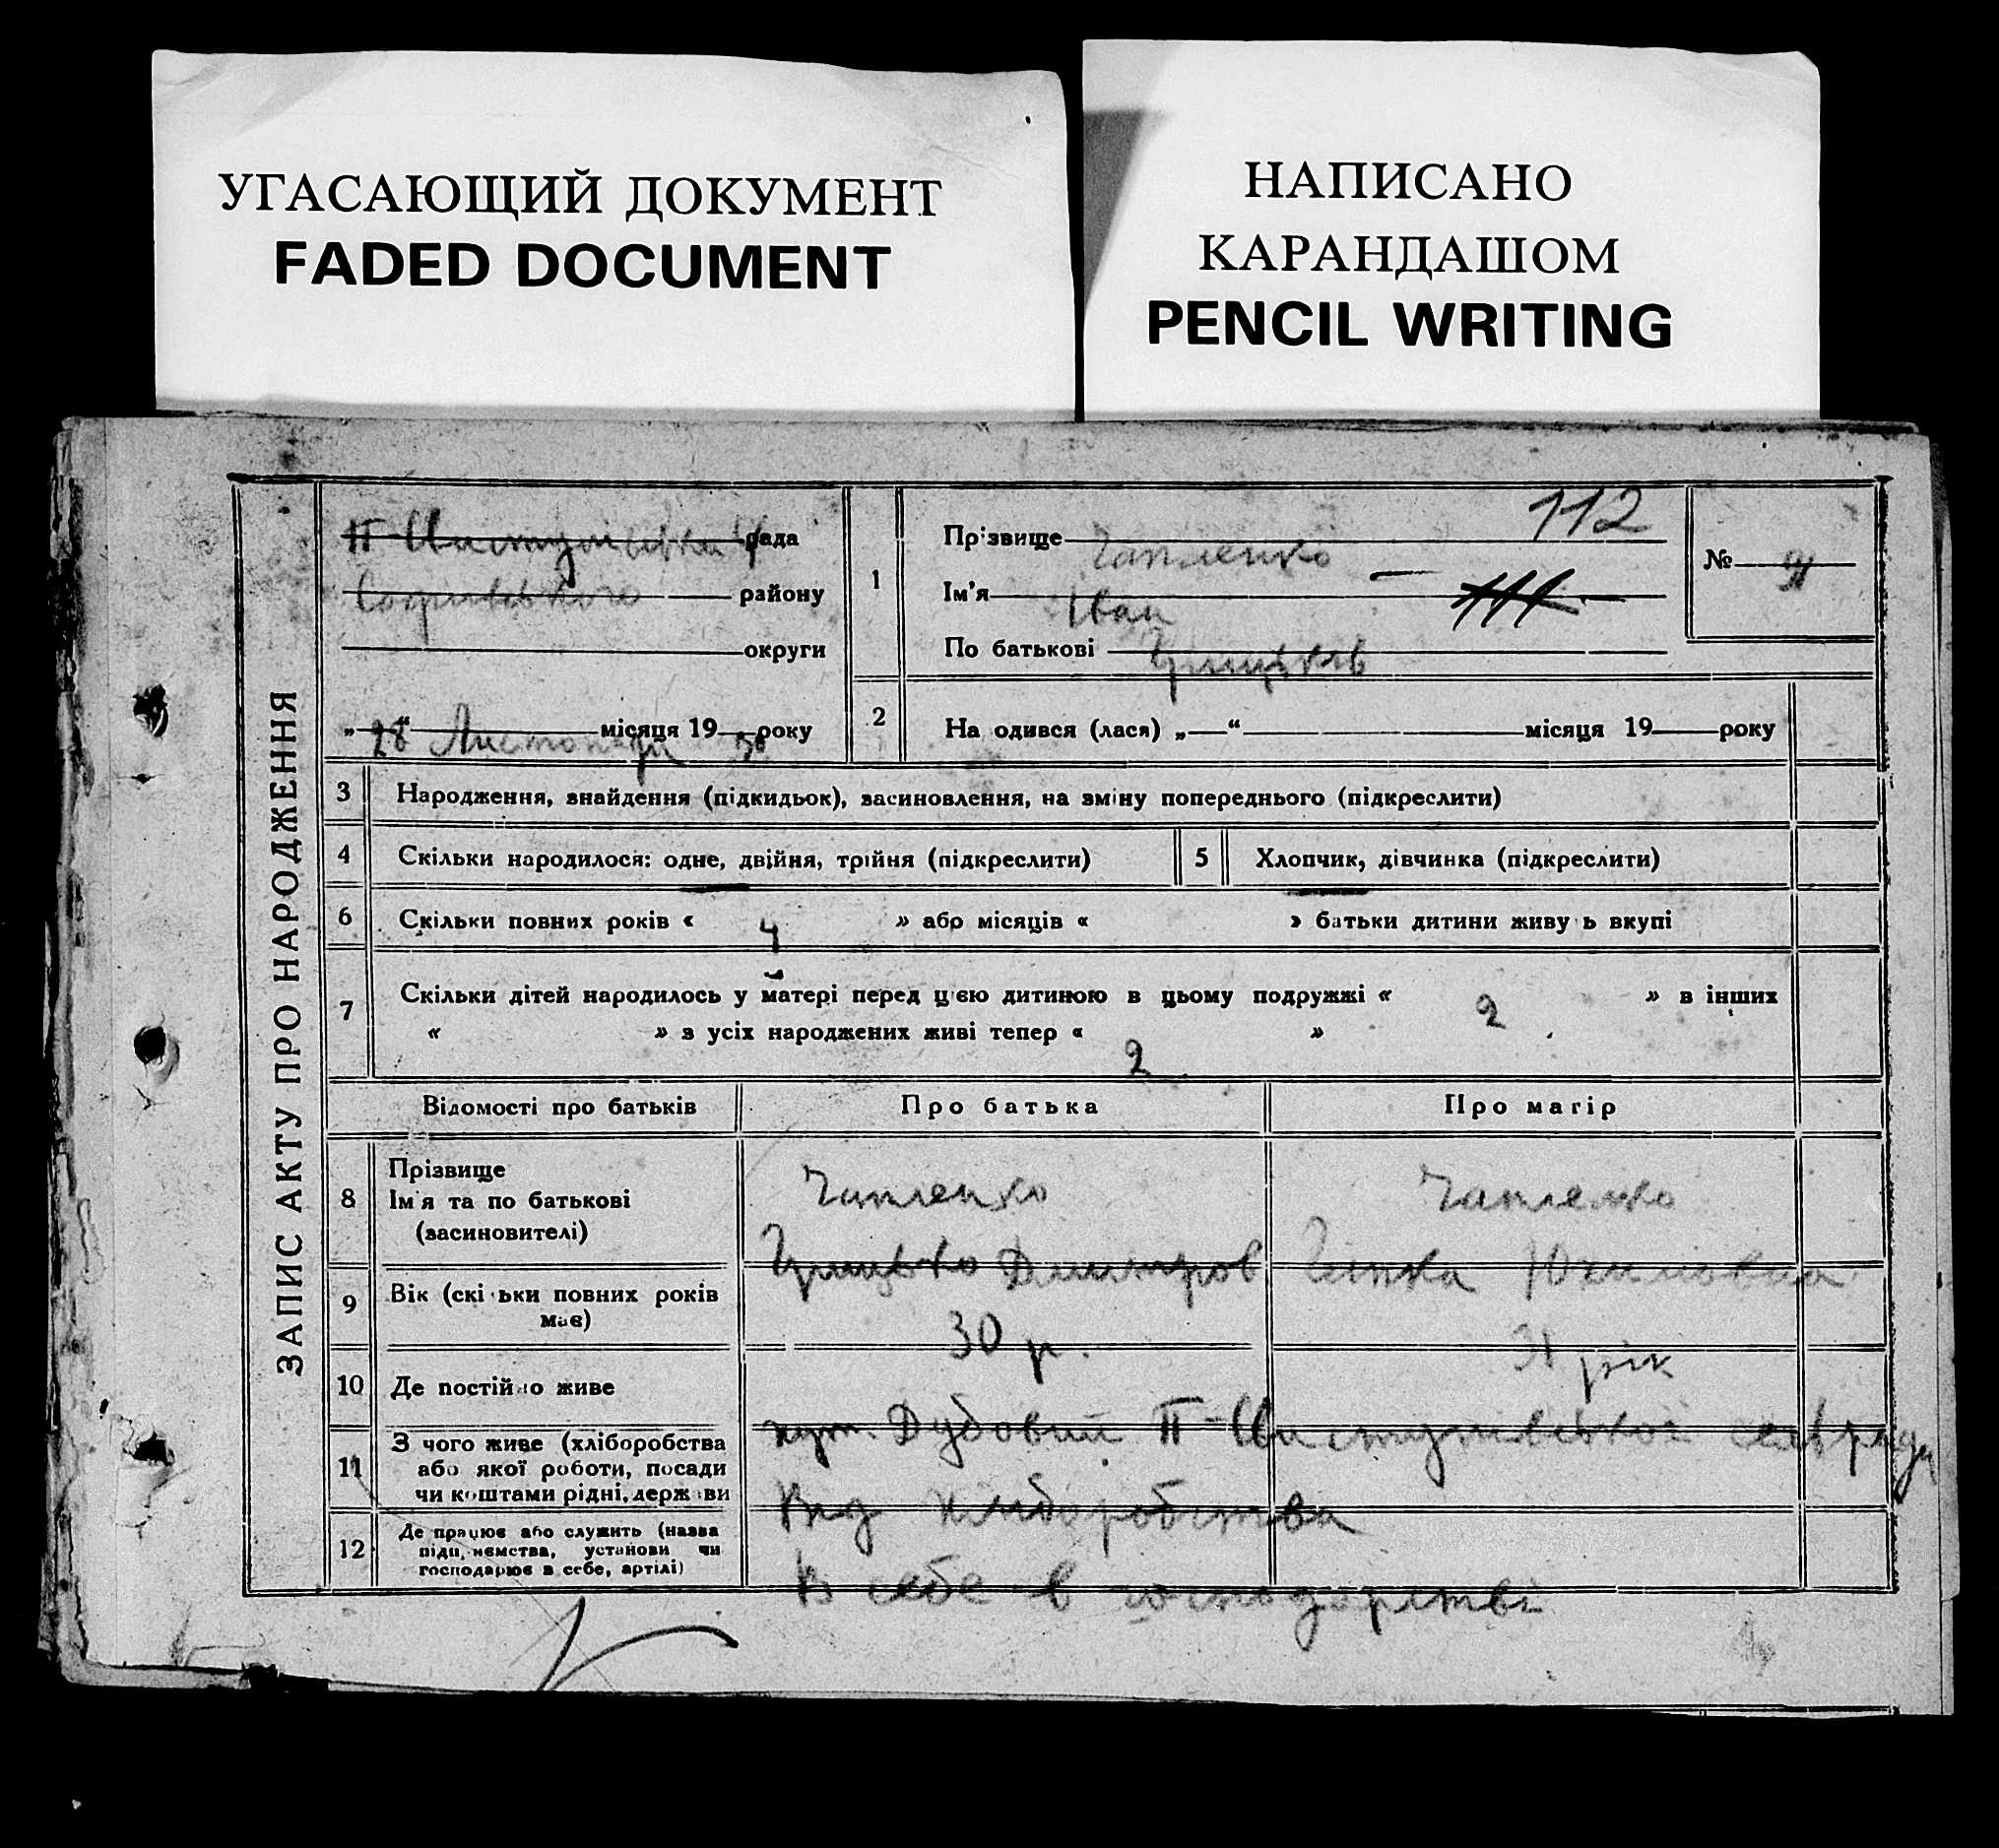 УГАСАЮЩИЙ ДОКУМЕНТ
FADED DOCUMENT
НАПИСАНО
КАРАНДАШОМ
PENCIL WRITING
ЗАПИС АКТУ ПРО НАРОДЖЕННЯ
рада
району
округи
„28“ Листопада місяця 1930 року
112
1 Прізвище Чапленко
Ім'я Іван 111
По батькові Грицьків
№ 91
2 На одився (лася) „—“ місяця 19 року
3 Народження, знайдення (підкидьок), засиновлення, на зміну попереднього (підкреслити)
4 Скільки народилося: одне, двійня, трійня (підкреслити)
5 Хлопчик, дівчинка (підкреслити)
6 Скільки повних років « 4 » або місяців « » батьки дитини живу ь вкупі
7 Скільки дітей народилось у матері перед цією дитиною в цьому подружжі « 2 » в інших
« » з усіх народжених живі тепер « 2 »
Відомості про батьків Про батька Про матір
8 Прізвище
Ім'я та по батькові
(засиновителі)
Чапленко
Грицько Дмитров
Чапленко
9 Вік (скі ьки повних років
має)
30 р.
31 рік
10 Де постійно живе
хут. Дубовий
11 З чого живе (хліборобства
або якої роботи, посади
чи коштами рідні, держави
Від хліборобства
12 Де працює або служить (назва
підприємства, установи чи
господарює в себе, артілі)
В себе в господарстві